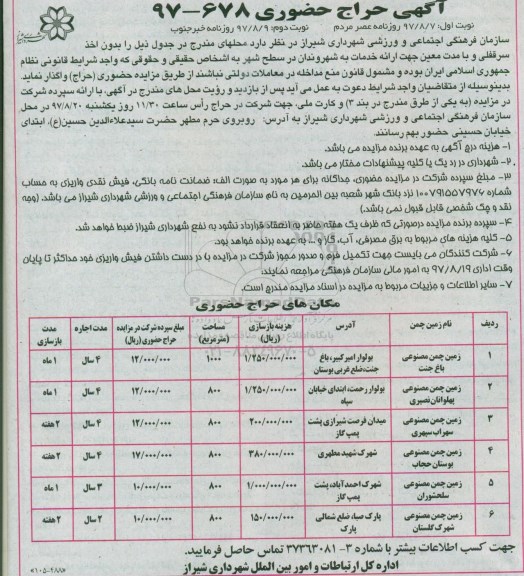 آگهی حراج حضوری ۶۷۸-۹۷
نوبت اول: ۹۷/۸/۷ روزنامه عصر مردم نوبت دوم: ۹۷/۸/۹ روزنامه خبر جنوب
سازمان فرهنگی اجتماعی و ورزشی شهرداری شیراز در نظر دارد محلهای مندرج در جدول ذیل را بدون اخذ
سرقفلی و با مدت معین جهت ارائه خدمات به شهروندان در سطح شهر به اشخاص حقیقی و حقوقی که واجد شرایط قانونی نظام
جمهوری اسلامی ایران بوده و مشمول قانون منع مداخله در معاملات دولتی نباشند از طریق مزایده حضوری (حراج) واگذار نماید.
بدینوسیله از متقاضیان واجد شرایط دعوت به عمل می آید پس از بازدید و رؤیت محل های مندرج در آگهی، با ارائه سپرده شرکت
در مزایده (به یکی از طرق مندرج در بند ۳) و کارت ملی، جهت شرکت در حراج رأس ساعت ۱۱/۳۰ روز یکشنبه ۹۷/۸/۲۰ در محل
سازمان فرهنگی اجتماعی و ورزشی شهرداری شیراز به آدرس: روبروی حرم مطهر حضرت سیدعلاءالدین حسین(ع)، ابتدای
خیابان حسینی حضور بهم رسانند.
۱- هزینه درج آگهی به عهده برنده مزایده می باشد.
۲- شهرداری در رد یک یا کلیه پیشنهادات مختار می باشد.
۳- مبلغ سپرده شرکت در مزایده حضوری، جداگانه برای هر مورد به صورت الف: ضمانت نامه بانکی، فیش نقدی واریزی به حساب
شماره ۱۰۰۷۹۱۵۵۷۹۷۶ نزد بانک شهر شعبه بین الحرمین به نام سازمان فرهنگی اجتماعی و ورزشی شهرداری شیراز می باشد. (وجه
نقد و چک شخصی قابل قبول نمی باشد)
۴- سپرده برنده مزایده درصورتی که ظرف یک هفته حاضر به انعقاد قرارداد نشود به نفع شهرداری شیراز ضبط خواهد شد.
۵- کلیه هزینه های مربوط به برق مصرفی، آب، گاز و ... به عهده برنده خواهد بود.
۶- شرکت کنندگان می بایست جهت تکمیل فرم و صدور مجوز شرکت در مزایده با در دست داشتن فیش واریزی خود حداکثر تا پایان
وقت اداری ۹۷/۸/۱۹ به امور مالی سازمان فرهنگی مراجعه نمایند.
۷- سایر اطلاعات و جزییات مربوط به مزایده در اسناد مزایده مندرج است.
مکان های حراج حضوری
ردیف نام زمین چمن آدرس هزینه بازسازی (ریال) مساحت (مترمربع) مبلغ سپرده شرکت در مزایده حراج حضوری (ریال) مدت اجاره مدت بازسازی
۱ زمین چمن مصنوعی باغ جنت بولوار امیرکبیر، باغ جنت، ضلع غربی بوستان ۱/۲۵۰/۰۰۰/۰۰۰ ۱۰۰۰ ۱۲/۰۰۰/۰۰۰ ۴ سال ۱ ماه
۲ زمین چمن مصنوعی پهلوانان نصیری بولوار رحمت، ابتدای خیابان سپاه ۱/۲۵۰/۰۰۰/۰۰۰ ۸۰۰ ۱۲/۰۰۰/۰۰۰ ۴ سال ۱ ماه
۳ زمین چمن مصنوعی سهراب سپهری میدان فرصت شیرازی پشت پمپ گاز ۲۰۰/۰۰۰/۰۰۰ ۸۰۰ ۱۲/۰۰۰/۰۰۰ ۴ سال ۲ هفته
۴ زمین چمن مصنوعی بوستان حجاب شهرک شهید مطهری ۳۸۰/۰۰۰/۰۰۰ ۸۰۰ ۱۷/۰۰۰/۰۰۰ ۴ سال ۲ هفته
۵ زمین چمن مصنوعی سلحشوران شهرک احمدآباد، پشت پمپ گاز ۱/۰۰۰/۰۰۰/۰۰۰ ۸۰۰ ۱۰/۰۰۰/۰۰۰ ۳ سال ۱ ماه
۶ زمین چمن مصنوعی شهرک گلستان پارک صبا، ضلع شمالی پارک ۱۵۰/۰۰۰/۰۰۰ ۸۰۰ ۱۰/۰۰۰/۰۰۰ ۲ سال ۲ هفته
جهت کسب اطلاعات بیشتر با شماره ۳-۳۷۳۶۳۰۸۱ تماس حاصل فرمایید.
اداره کل ارتباطات و امور بین الملل شهرداری شیراز
«۱۰۵-۲۸۸»